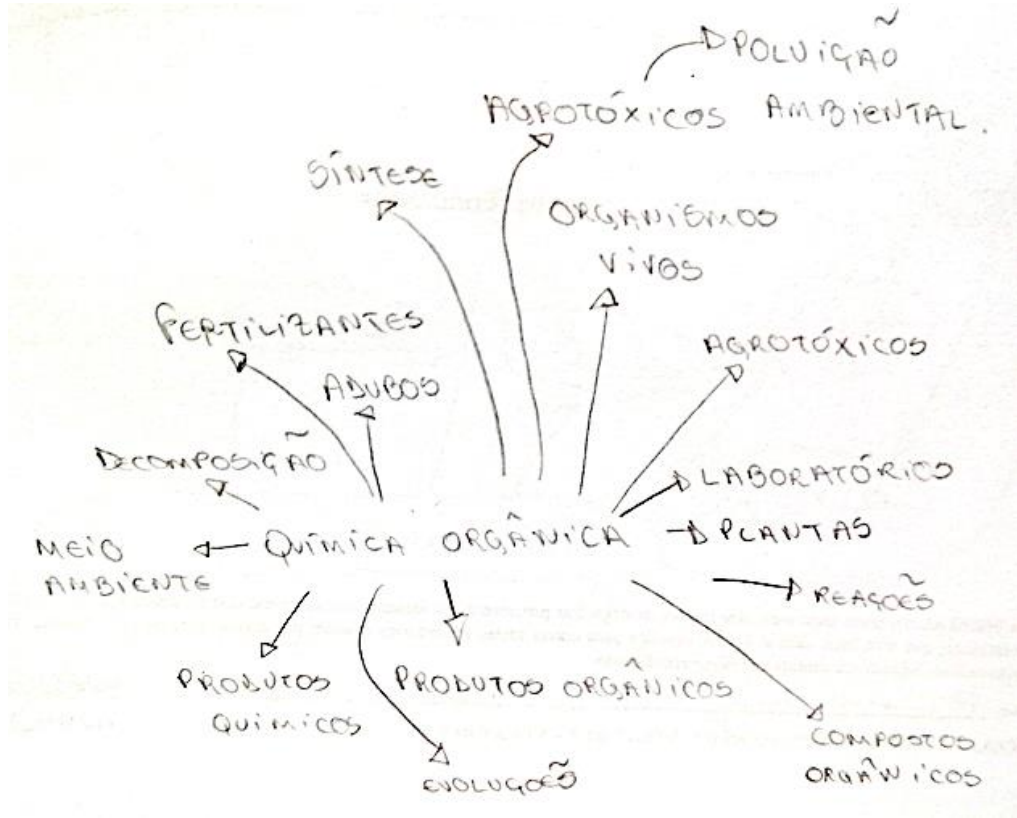 POLUIÇÃO
AGROTÓXICOS AMBIENTAL.
SÍNTESE
ORGANISMOS
VIVOS
FERTILIZANTES
AGROTÓXICOS
ADUBOS
DECOMPOSIÇÃO
LABORATÓRICO
MEIO
AMBIENTE
QUÍMICA ORGÂNICA
PLANTAS
REAÇÕES
PRODUTOS
QUÍMICOS
PRODUTOS ORGÂNICOS
COMPOSTOS
ORGÂNICOS
EVOLUÇÕES